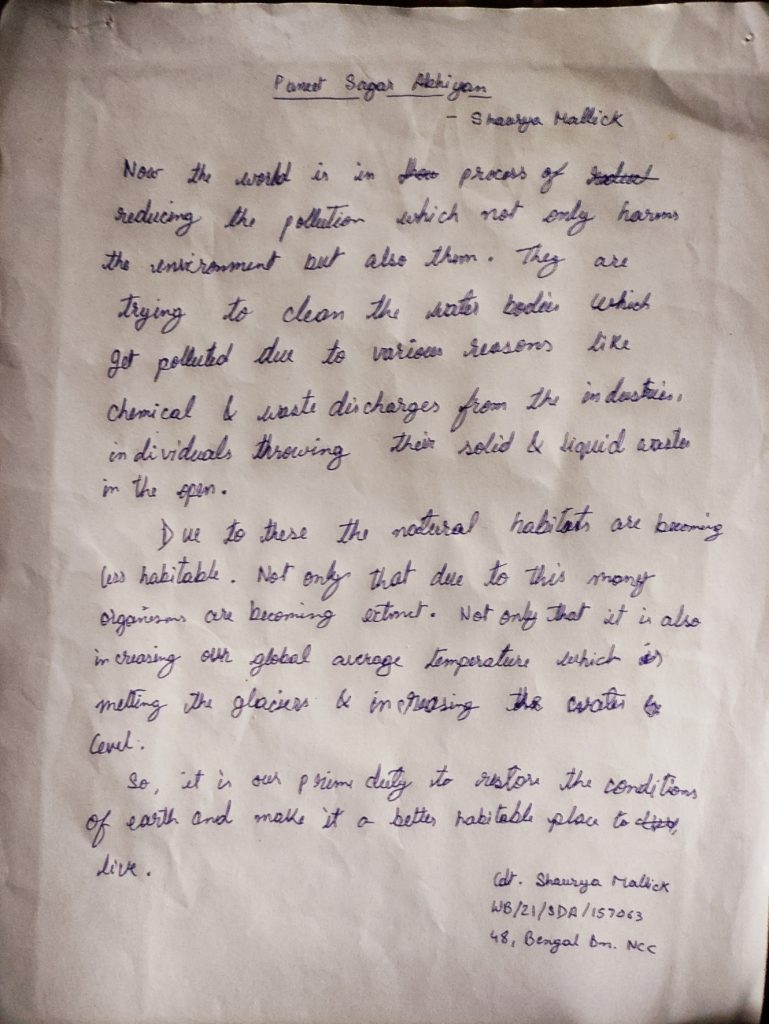 Puneet Sagar Abhiyan
- Shaurya Mallick
Now the world is in process of
reducing the pollution which not only harms
the environment but also them. They are
trying to clean the water bodies which
get polluted due to various reasons like
chemical & waste discharges from the industries,
individuals throwing their solid & liquid wastes
in the open.
Due to these the natural habitats are becoming
less habitable. Not only that due to this many
organisms are becoming extinct. Not only that it is also
increasing our global average temperature which is
melting the glaciers & increasing the water
level.
So, it is our prime duty to restore the conditions
of earth and make it a better habitable place to
live.
Cdt. Shaurya Mallick
WB/21/SDA/157063
48, Bengal Bn. NCC